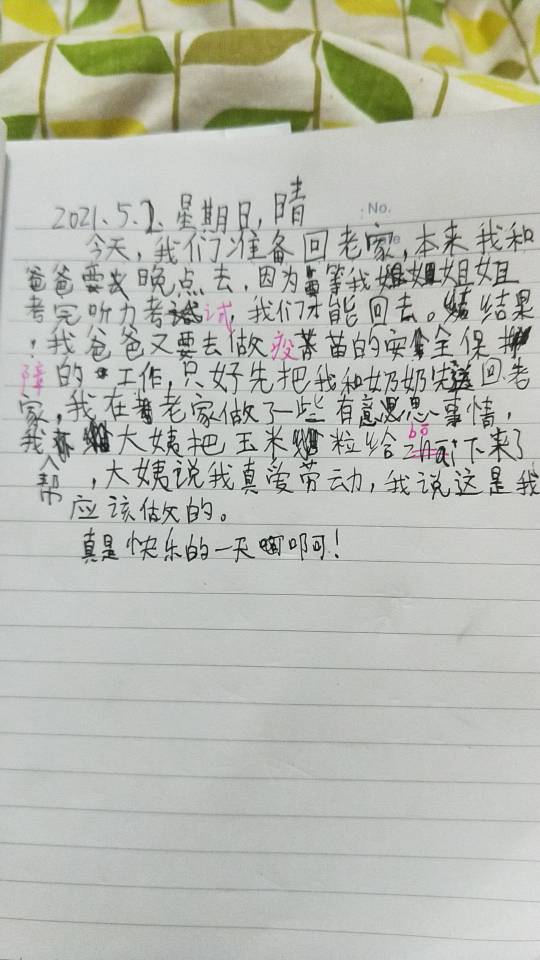 No.
2021.5.2.星期日,晴
今天,我们准备回老家,本来我和
爸爸要晚点去,因为等我姐姐
考完听力考试,我们才能回去。结果
,我爸爸又要去做疫苗的安全保
障的工作,只好先把我和奶奶先送回老
家,我在老家做了一些有意思事情,
我帮大姨把玉米粒给bō下来了
,大姨说我真爱劳动,我说这是我
应该做的。
真是快乐的一天啊!